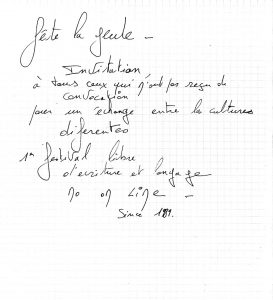 fête la gueule -
Invitation
à tous ceux qui n'ont pas reçu de
convocation
pour un échange entre les cultures
differentes
1er festival libre
d'ecriture et langage
no on Line -
Since